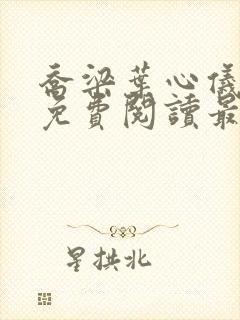 喬梁葉心儀
免費閱讀最
星拱北